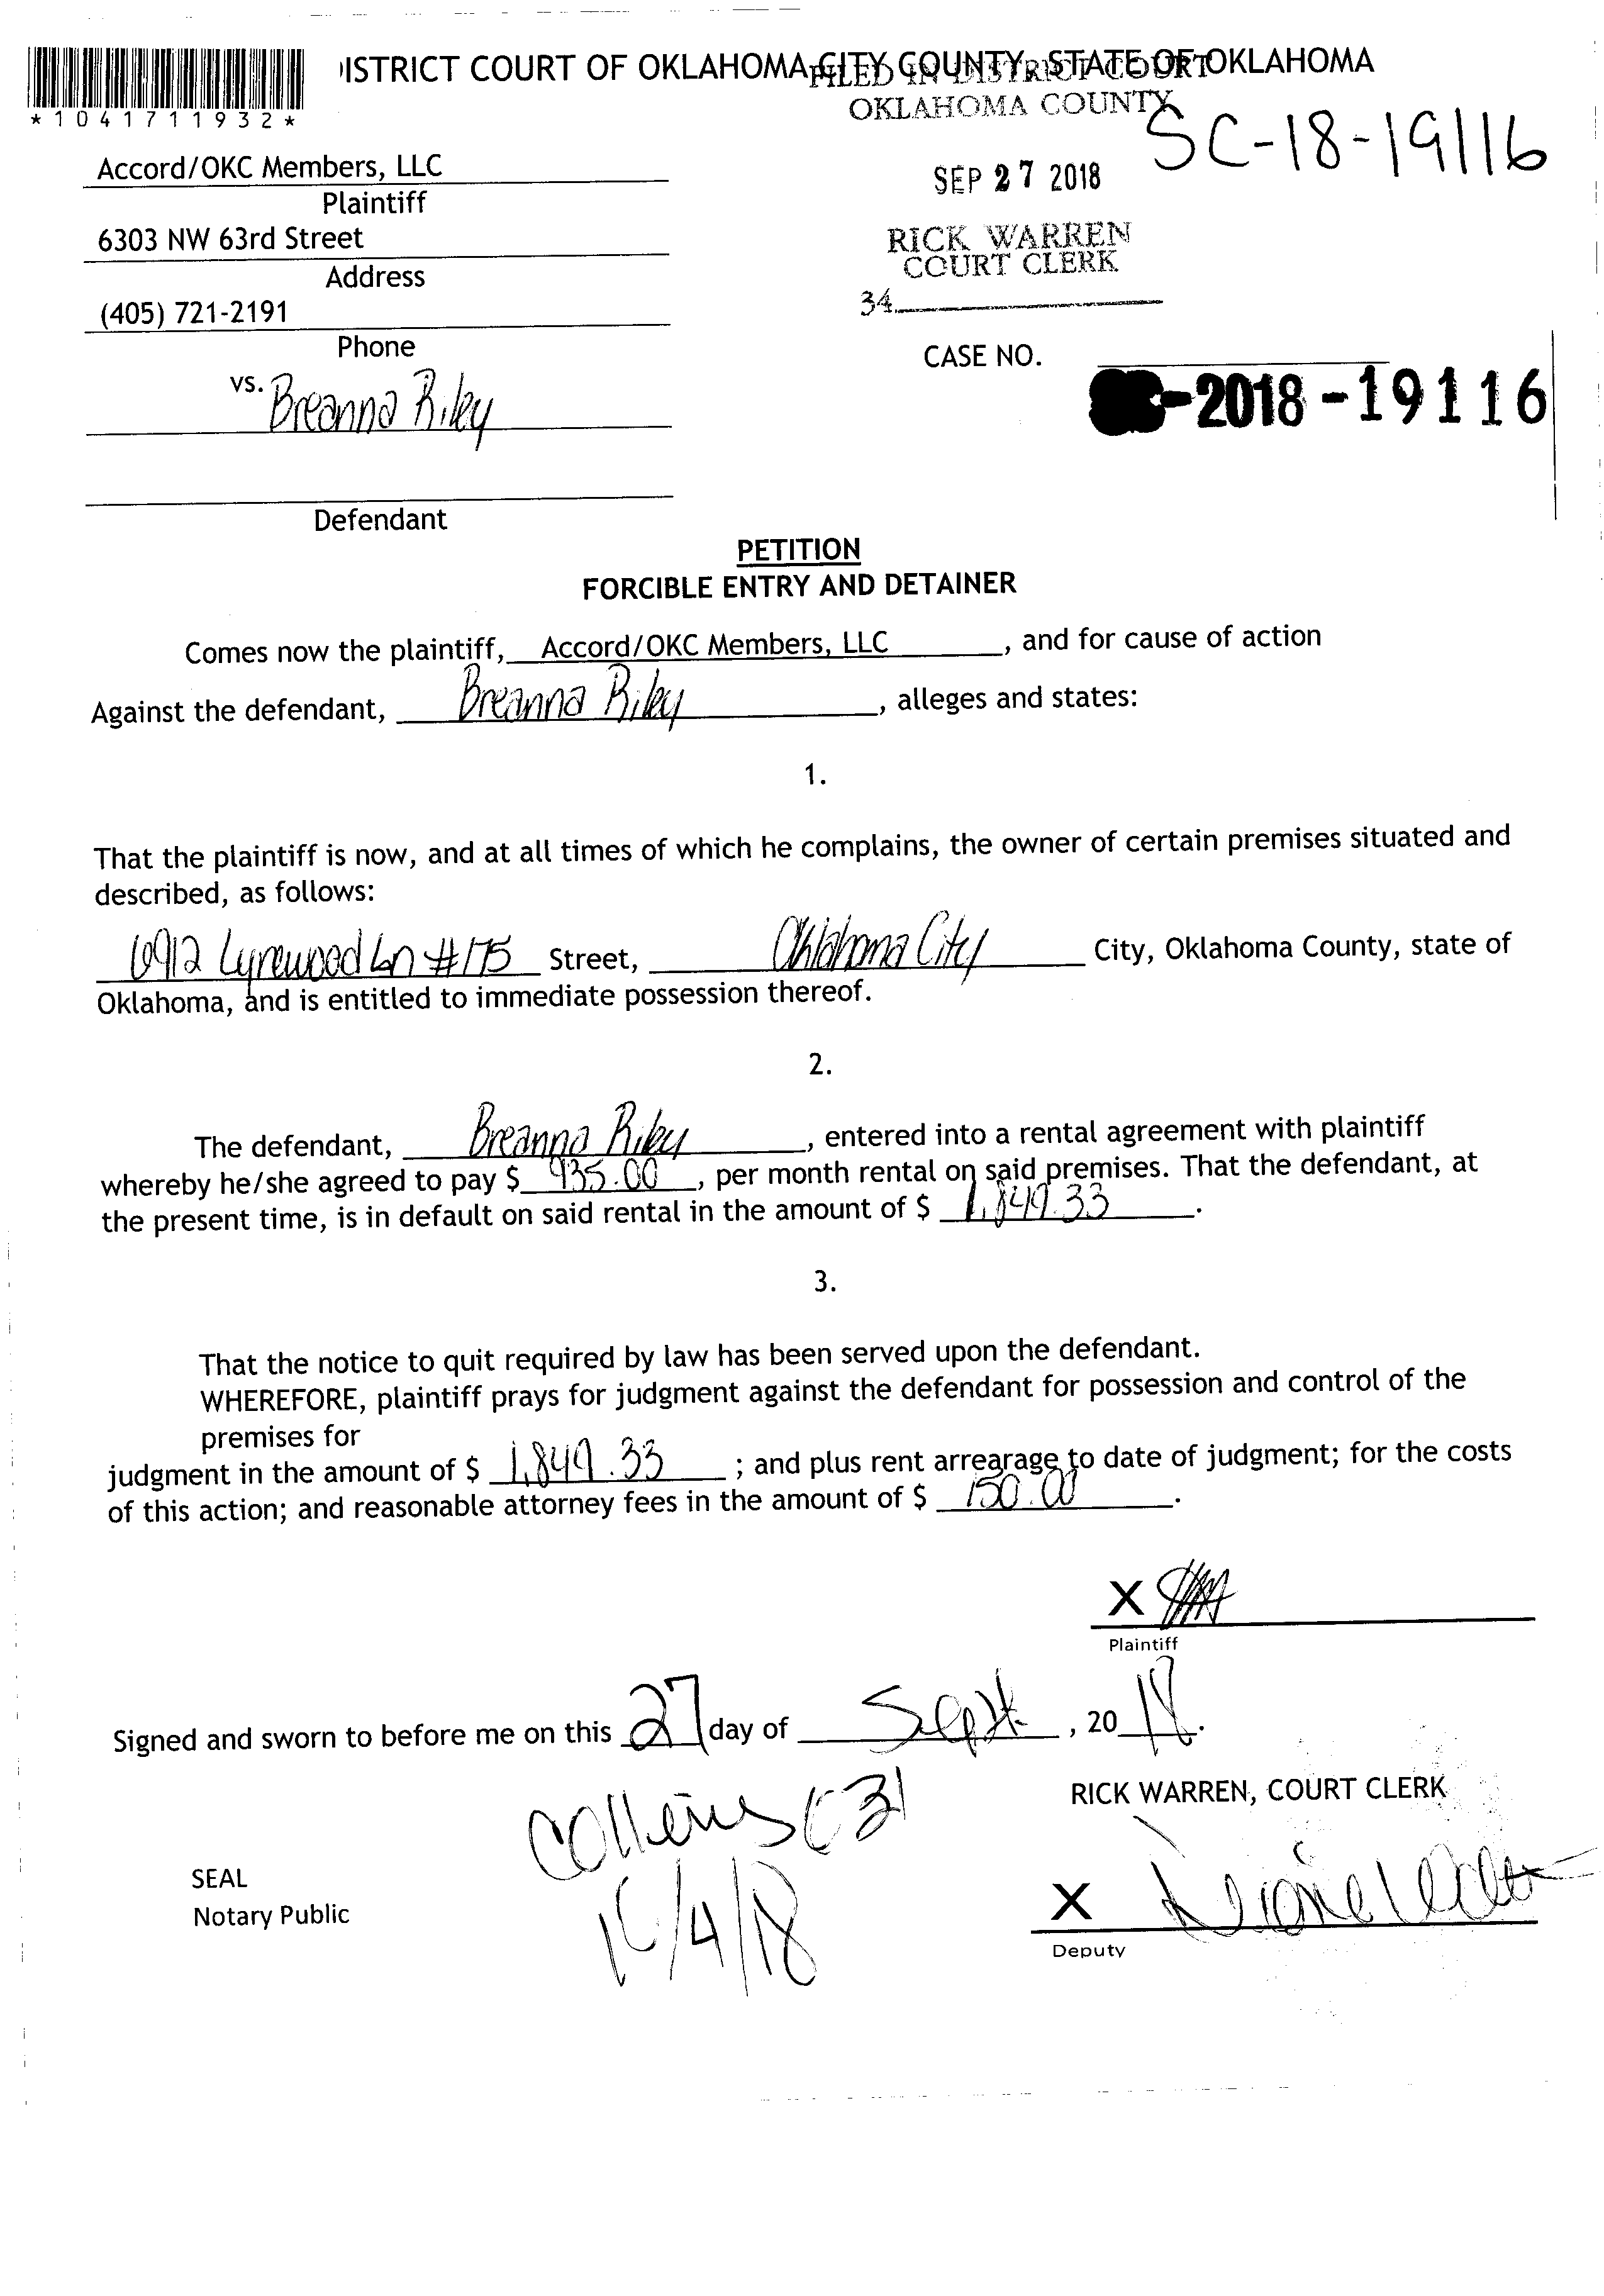 DISTRICT COURT OF OKLAHOMA CITY COUNTY, STATE OF OKLAHOMA
FILED IN DISTRICT COURT
OKLAHOMA COUNTY
*1041711932*
SC-18-19116
Accord/OKC Members, LLC
Plaintiff
SEP 27 2018
6303 NW 63rd Street
Address
RICK WARREN
COURT CLERK
(405) 721-2191
34
Phone
CASE NO.
vs. Breanna Riley
-2018-19116
Defendant
PETITION
FORCIBLE ENTRY AND DETAINER
Comes now the plaintiff, Accord/OKC Members, LLC, and for cause of action
Against the defendant, Breanna Riley, alleges and states:
1.
That the plaintiff is now, and at all times of which he complains, the owner of certain premises situated and
described, as follows:
6912 Lyrewood Ln #175 Street, Oklahoma City City, Oklahoma County, state of
Oklahoma, and is entitled to immediate possession thereof.
2.
The defendant, Breanna Riley, entered into a rental agreement with plaintiff
whereby he/she agreed to pay $ 935.00, per month rental on said premises. That the defendant, at
the present time, is in default on said rental in the amount of $ 1,849.33.
3.
That the notice to quit required by law has been served upon the defendant.
WHEREFORE, plaintiff prays for judgment against the defendant for possession and control of the
premises for
judgment in the amount of $ 1,849.33; and plus rent arrearage to date of judgment; for the costs
of this action; and reasonable attorney fees in the amount of $ 150.00.
X
Plaintiff
Signed and sworn to before me on this 27 day of Sept, 2018.
RICK WARREN, COURT CLERK
SEAL
Notary Public
X
Deputy